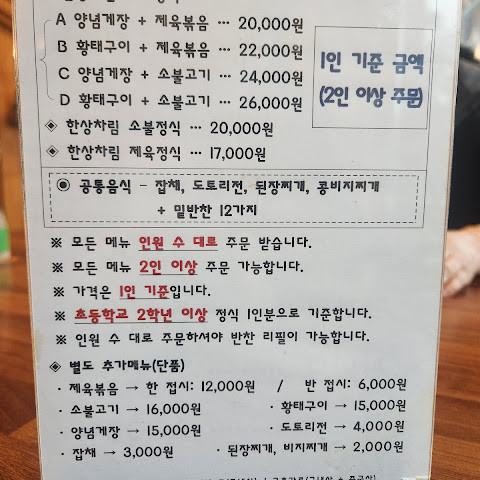 A 양념게장 + 제육볶음 … 20,000원
B 황태구이 + 제육볶음 … 22,000원
C 양념게장 + 소불고기 … 24,000원
D 황태구이 + 소불고기 … 26,000원
1인 기준 금액
(2인 이상 주문)
◈ 한상차림 소불정식 … 20,000원
◈ 한상차림 제육정식 … 17,000원
◉ 공통음식 - 잡채, 도토리전, 된장찌개, 콩비지찌개
+ 밑반찬 12가지
※ 모든 메뉴 인원 수 대로 주문 받습니다.
※ 모든 메뉴 2인 이상 주문 가능합니다.
※ 가격은 1인 기준입니다.
※ 초등학교 2학년 이상 정식 1인분으로 기준합니다.
※ 인원 수 대로 주문하셔야 반찬 리필이 가능합니다.
◈ 별도 추가메뉴(단품)
· 제육볶음 → 한 접시: 12,000원 / 반 접시: 6,000원
· 소불고기 → 16,000원 · 황태구이 → 15,000원
· 양념게장 → 15,000원 · 도토리전 → 4,000원
· 잡채 → 3,000원 · 된장찌개, 비지찌개 → 2,000원